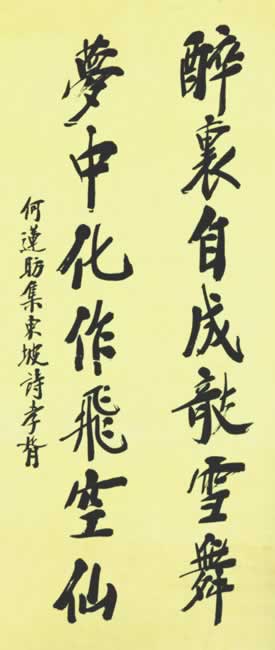 醉裏自成雪舞
夢中化作飛空仙
何蓮舫集東坡詩孝胥